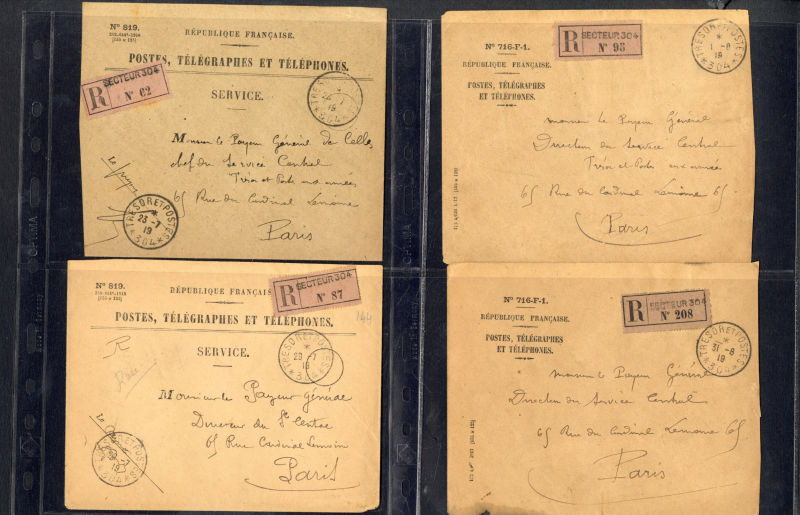 Nº 819.
RÉPUBLIQUE FRANÇAISE.
POSTES, TÉLÉGRAPHES ET TÉLÉPHONES.
R
SECTEUR 304
Nº 62
SERVICE.
TRESOR ET POSTES
19
304
Monsieur le Payeur Général de Celles
chef du Service Central
Trésor et Postes aux armées
65 Rue du Cardinal Lemoine
Paris
TRESOR ET POSTES
23 -7
19
304
Nº 716-F-1.
RÉPUBLIQUE FRANÇAISE.
POSTES, TÉLÉGRAPHES
ET TÉLÉPHONES.
R
SECTEUR 304
Nº 95
TRESOR ET POSTES
1 -8
19
304
monsieur le Payeur Général
Directeur du Service Central
Trésor et Postes aux armées
65 Rue du Cardinal Lemoine 65
Paris
Nº 819.
RÉPUBLIQUE FRANÇAISE
POSTES, TÉLÉGRAPHES ET TÉLÉPHONES.
R
SECTEUR 304
Nº 87
144
R
SERVICE.
TRESOR ET POSTES
29 -7
19
304
Monsieur le Payeur général
Directeur du Sce Central
65 Rue Cardinal Lemoine
Paris
TRESOR ET POSTES
19
304
Nº 716-F-1.
RÉPUBLIQUE FRANÇAISE.
POSTES, TÉLÉGRAPHES
ET TÉLÉPHONES.
R
SECTEUR 304
Nº 208
TRESOR ET POSTES
31 -8
19
304
monsieur le Payeur Général
Directeur du Service Central
65 Rue du Cardinal Lemoine 65
Paris
OPTIMA